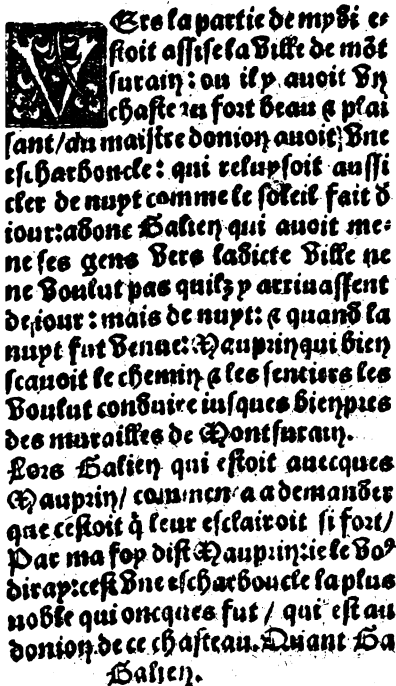 VErs la partie de mydi e-
stoit assise la Ville de mõt
surain: ou il y auoit Vn
chasteau fort beau & plai
sant/au maistre donion auoit Vne
escharboucle: qui reluysoit aussi
cler de nuyt comme le soleil fait d
iour: adonc Galien qui auoit me-
ne ses gens Vers ladicte Ville ne
ne Voulut pas quilz y arriuassent
de iour: mais de nuyt: & quand la
nuyt fut Venue: Mauprin qui bien
scauoit le chemin & les sentiers les
Voulut conduire iusques bien pres
des murailles de Montsurain.
Lors Galien qui estoit auecques
Mauprin/ commenca a demander
que cestoit q̃ leur esclairoit si fort/
Par ma foy dist Mauprin: ie le Voꝰ
diray: cest Vne escharboucle la plus
noble qui oncques fut / qui est au
donion de ce chasteau. Quant Ga
Galien.